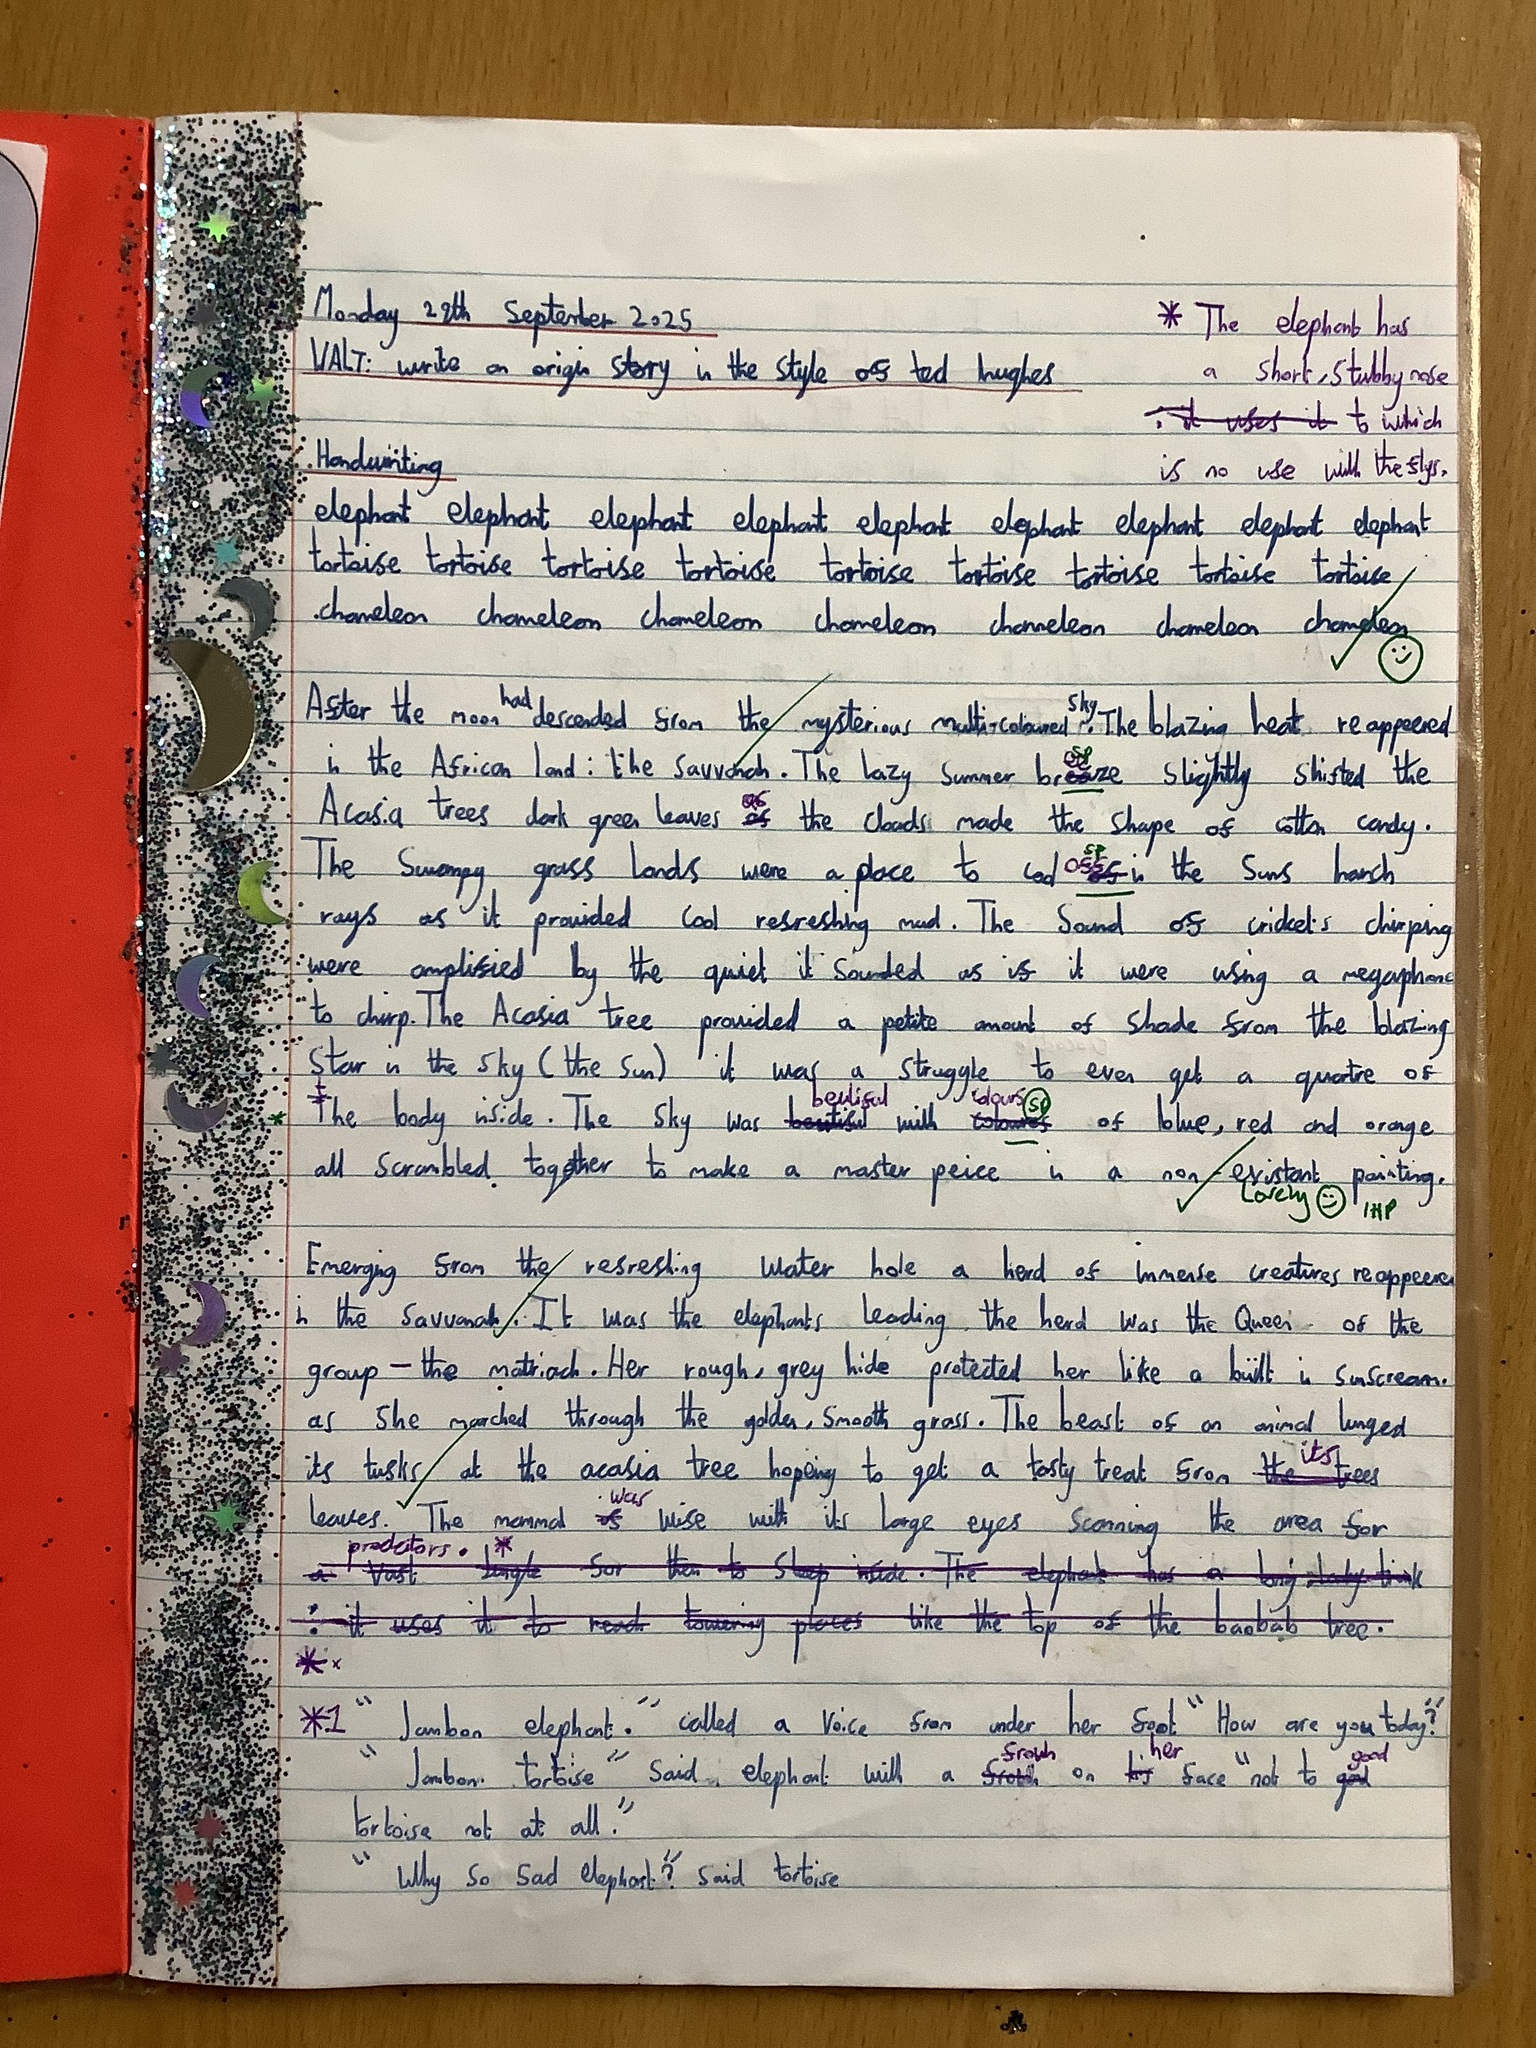 Monday 29th September 2025
WALT: write an origin story in the style of ted hughes
* The elephant has
a short, stubby nose
: it uses it to which
is no use with the flys.
Handwriting
elephant elephant elephant elephant elephant elephant elephant elephant elephant
tortoise tortoise tortoise tortoise tortoise tortoise tortoise tortoise tortoise
chameleon chameleon chameleon chameleon chameleon chameleon chameleon
After the moon had descended from the mysterious multi-coloured sky. The blazing heat reappeered
in the African land: the savvanah. The lazy summer breeze sp slightly shifted the
Acasia trees dark green leaves as the clouds made the shape of cotton candy.
The Swampy grass lands were a place to cool off sp in the Suns harsh
rays as it provided cool refreshing mud. The Sound of crickets chirping
were amplified by the quiet it Sounded as if it were using a megaphone
to chirp. The Acasia tree provided a petite amount of shade from the blazing
Star in the sky (the sun) it was a struggle to even get a quatre of
the body inside. The sky was beutiful with colours sp of blue, red and orange
all scrambled together to make a master peice in a non-existant painting.
Lovely 1HP
Emerging from the refreshing water hole a herd of immense creatures reappeered
in the savvanah. It was the elephants leading the herd was the Queen of the
group - the matriach. Her rough, grey hide protected her like a built in sunscream.
as she marched through the golden, smooth grass. The beast of an animal lunged
its tusks at the acasia tree hopeing to get a tasty treat from the its trees
leaves. The mammal is was wise with its large eyes scanning the area for
predetors. *
a vast jungle for them to sleep inside. The elephant has a long trunk
: it uses it to reach towering places like the top of the baobab tree.
* x
*1 " Jambon elephant." called a voice from under her foot "How are you today?"
" Jambon tortoise" said elephant with a frown on her face "not to good
tortoise not at all."
" Why so sad elephant?" said tortoise